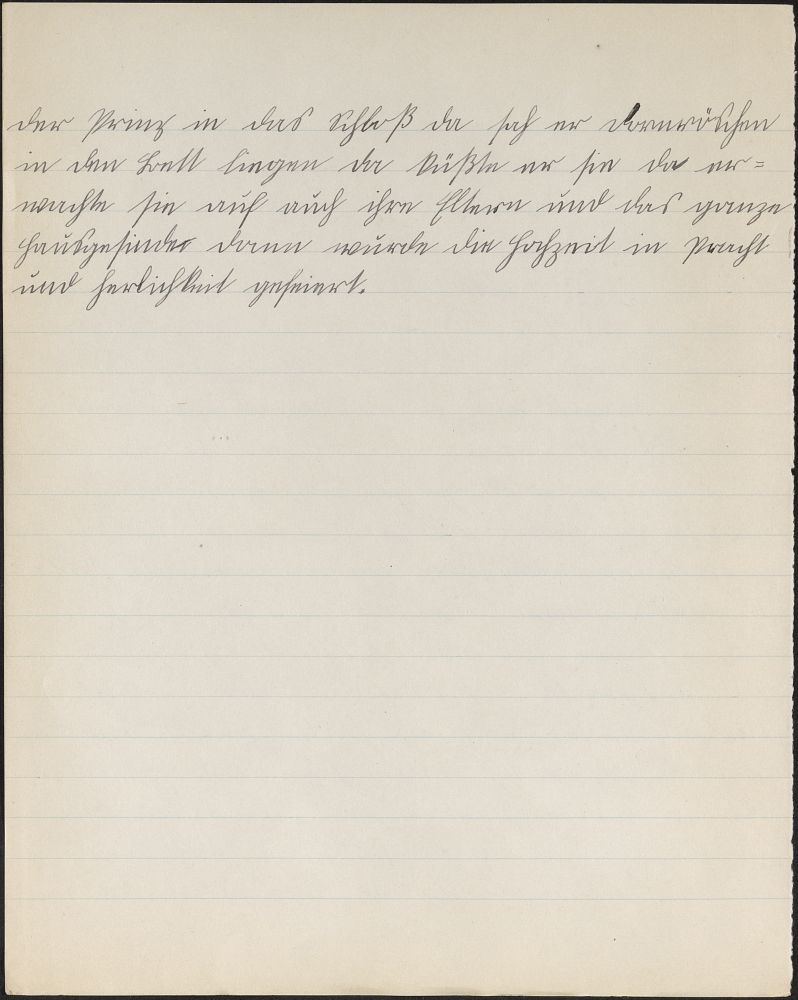 der Prinz in das Schloß da sah er Dornröschen
in den Bett liegen da küßte er sie da er=
wachte sie auf auch ihre Eltern und das ganze
Hausgesinde dann wurde die Hochzeit in Pracht
und Herlichkeit gefeiert.